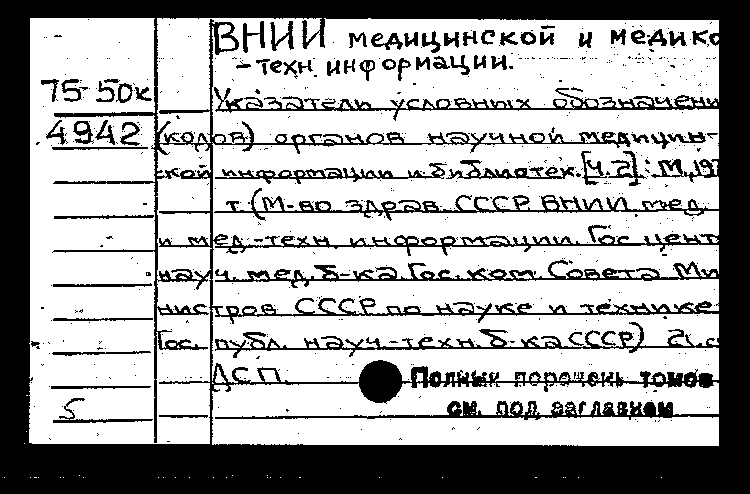 ВНИИ медицинской и медико
-техн информации.
75-50к
Указатель условных обозначени
4942
(кодов) органов научной медицин-
ской информации и библиотек. [Ч.2]: М, 197
т. (М-во здрав. СССР. ВНИИ мед.
и мед.-техн. информации. Гос. цент
науч. мед. б-ка. Гос. ком. Совета Ми
нистров СССР по науке и технике
Гос. публ. науч.-техн. б-ка СССР)
ДСП.
Полный перечень томов
см. под заглавием
5